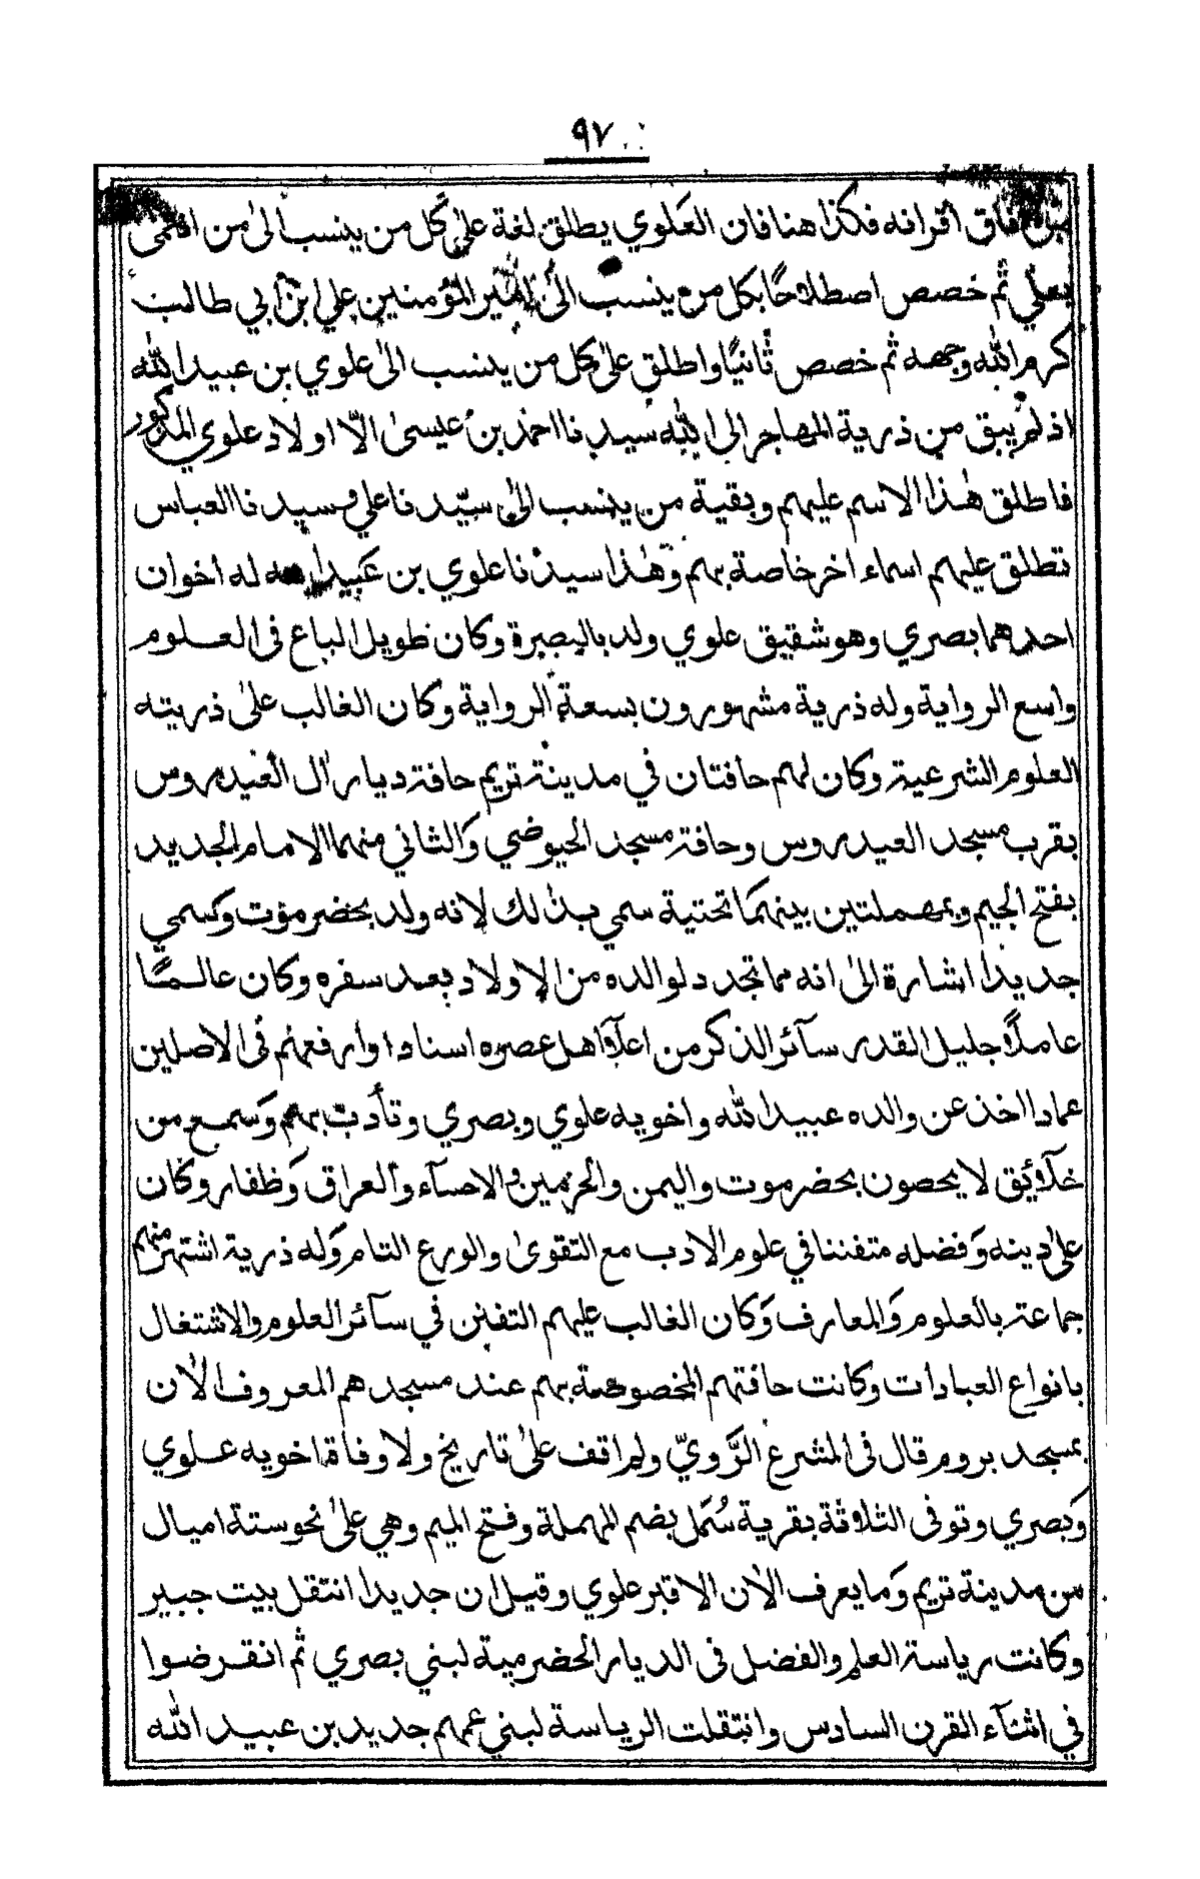 ٩٧
من فاق أقرانه فكذا هنا فان العلوي يطلق لغة على كل من ينسب الى من
بعلي ثم خصص اصطلاحًا بكل من ينسب الى امير المؤمنين علي ابن ابي طالب
كرم الله وجهه ثم خصص ثانيًا واطلق على كل من ينسب الى علوي بن عبيد الله
اذ لم يبق من ذرية المهاجر الى الله سيدنا احمد بن عيسى الّا اولاد علوي المذكور
فاطلق هذا الاسم عليهم وبقية من ينسب الى سيّدنا علي وسيدنا العباس
تطلق عليهم اسماء اخر خاصة بهم وهذا سيدنا علوي بن عبيد الله له اخوان
احدهما بصري وهو شقيق علوي ولد بالبصرة وكان طويل الباع فى العلوم
واسع الرواية وله ذرية مشهورون بسعة الرواية وكان الغالب على ذريته
العلوم الشرعية وكان لهم حافتان في مدينة تريم حافة ديار ال العيدروس
بقرب مسجد العيدروس وحافة مسجد الحيوضي والثاني منهما الامام الجديد
بفتح الجيم وبمهملتين بينهما تحتية سمي بذلك لانه ولد بحضرموت وسمي
جديدا اشارة الى انه مما تجدد لوالده من الاولاد بعد سفره وكان عالمًا
عاملًا جليل القدر سآئر الذكر من اعلآ اهل عصره اسنادا وارفعهم فى الاصلين
عمادا اخذ عن والده عبيد الله واخويه علوي وبصري وتأدب بهم وسمع من
خلآئق لا يحصون بحضرموت واليمن والحرمين والاحسآء والعراق وظفار وكان
على دينه وفضله متفننا في علوم الادب مع التقوى والورع التام وله ذرية اشتهر منهم
جماعة بالعلوم والمعارف وكان الغالب عليهم التفنن في سآئر العلوم والاشتغال
بانواع العبادات وكانت حافتهم المخصوصة بهم عند مسجدهم المعروف الآن
بمسجد بروم قال فى المشرع الرَّويّ ولم اقف على تاريخ ولا وفاة اخويه علوي
وبصري وتوفى الثلاثة بقرية سُمَل بضم المهملة وفتح الميم وهي على نحو ستة اميال
من مدينة تريم وما يعرف الآن الا قبر علوي وقيل ان جديدا انتقل بيت جبير
وكانت رياسة العلم والفضل فى الديار الحضرمية لبني بصري ثم انقرضوا
في اثنآء القرن السادس وانتقلت الرياسة لبني عمهم جديد بن عبيد الله